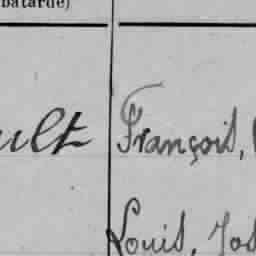 batarde)
ult François,
Louis, Jos